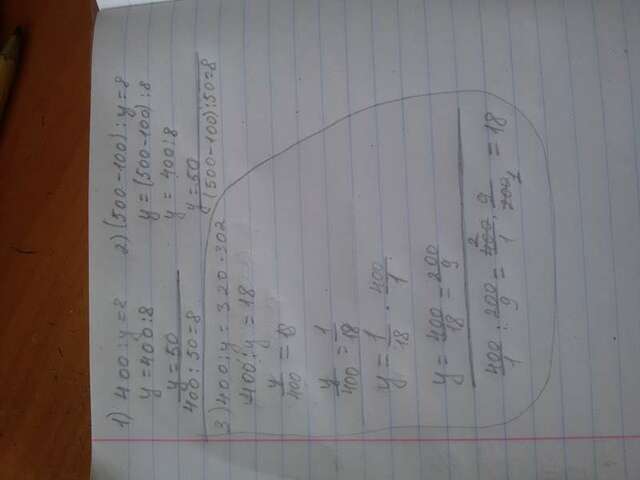 1) 400:y=8
y=400:8
y=50
400:50=8
2) (500-100):y=8
y=(500-100):8
y=400:8
y=50
(500-100):50=8
3) 400:y=320-302
400:y=18
y/400=18
y/400=1/18
y=1/18·400/1
y=400/18=200/9
400/1:200/9=400/1·9/200=18